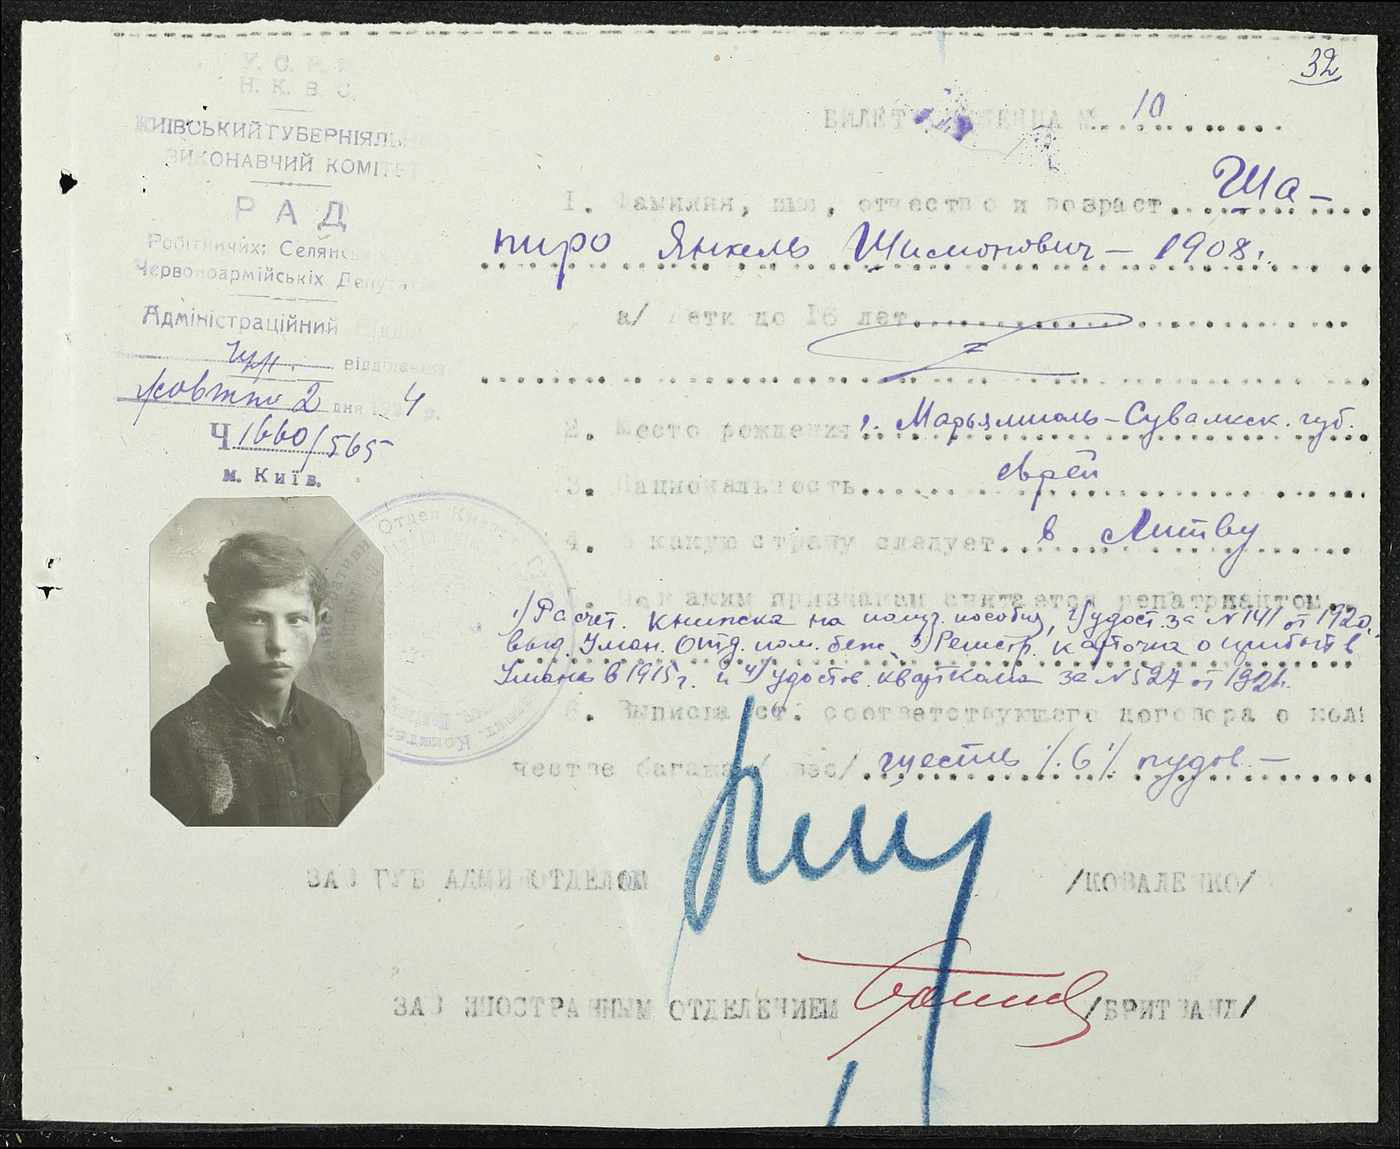 32
У. С. Р. Р.
Н. К. В. С.
КИІВСЬКИЙ ГУБЕРНІЯЛЬ
ВИКОНАВЧИЙ КОМІТЕТ
РАД
Робітничих, Селянсь
Червоноармійських Депут
Адміністраційний Відділ
відділення
Жовтня 2 дня 192 4 р.
Ч. 1660/565
м. Київ.
БИЛЕТ № 10
1. Фамилия, имя, отчество и возраст Ша-
пиро Янкель Шимонович - 1908 г.
а/ Дети до 16 лет
2. Место рождения г. Марьямполь - Сувалкск. губ.
3. Национальность еврей
4. В какую страну следует в Литву
5. По каким признакам считается репатриантом
1) Расчет. книжка на получ. пособия, 2) удост. за № 141 от 1920,
выд. Уман. Отд. пом. беж., 3) Регистр. карточка о прибыт. в
Умань в 1915 г. и 4) удостов. кварткома за № 527 от 192
6. Выписка ст. соответствующего договора о коли
честве багажа / вес/ шесть /.6/ пудов. -
ЗАВ ГУБ АДМИНОТДЕЛОМ /КОВАЛЕНКО/
ЗАВ ИНОСТРАННЫМ ОТДЕЛЕНИЕМ /БРИТВАНД/